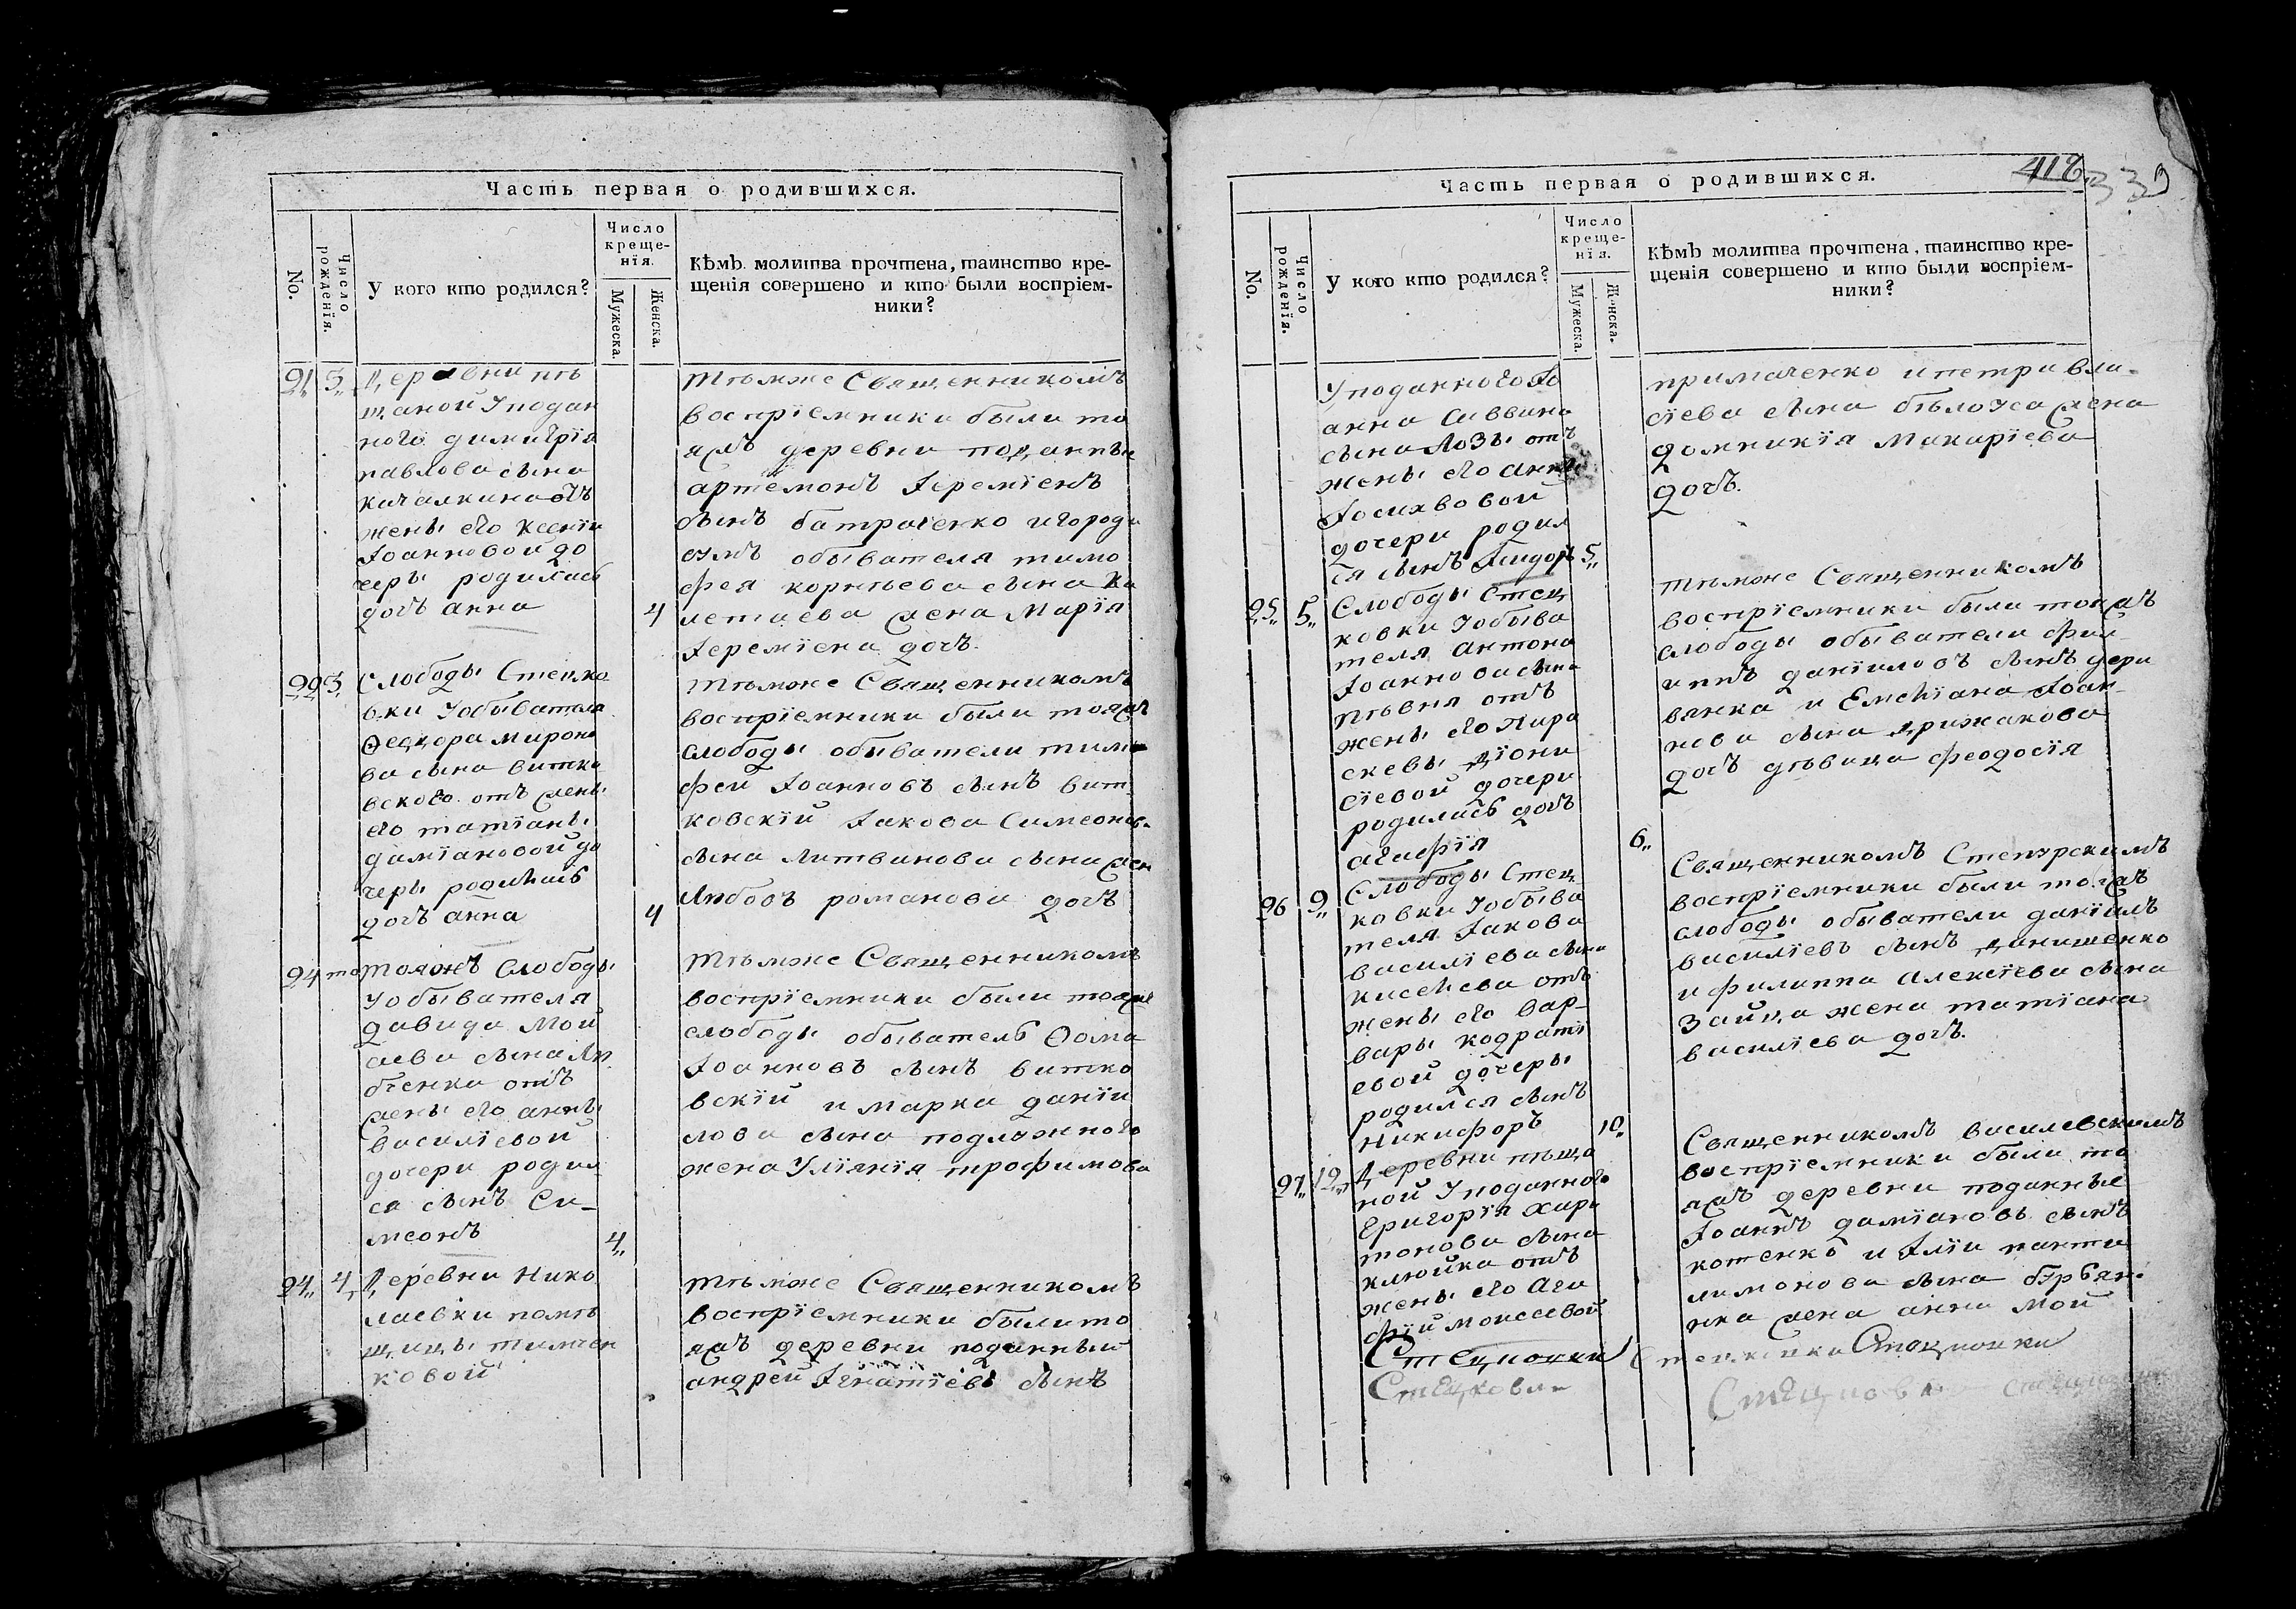 Часть первая о родившихся.
No.
Число рожденїя.
У кого кто родился?
Число креще-нїя.
Мужеска.
Женска.
Кѣмъ молитва прочтена, таинство кре-
щенія совершено и кто были воспріем-
ники?
91 3
Деревни пѣ
щаной У подан
ного димитрїя
павлова сына
качалкина отъ
жены его Ксенїи
Іоанновой до
черы родилась
дочъ анна
4
тѣмже Священникомъ
воспрїемники были то
яжъ деревни поданные
артемонъ Іеремїенъ
сынъ батраченко и городи
обывателя тимо
фея корнѣева сына ка
жена Марїя
Іеремїена дочъ.
92 3
Слободы Стецко
вки У обывателя
Ѳеодора мироно
ва сына витко
вского отъ жены
его татїаны
дамїановой до
черы родилась
дочъ анна
4
тѣмже Священникомъ
воспрїемники были тояжъ
слободы обыватели тимо
фей Іоанновъ сынъ вит
ковскїй Іакова Симеонов.
сына литвинова сына жен
Любовъ романова дочъ
94
тояжъ Слободы
У обывателя
давида Мой
сеева сына
отъ
жены его анны
василїевой
дочери родил
ся сынъ Си-
меонъ
4
тѣмже Священникомъ
воспрїемники были тояже
слободы обыватель Ѳома
Іоанновъ сынъ витко
вскїй и марка данїи
лова сына подложного
жена Улїянїя трофимова
94 4
Деревни Нико
лаевки помѣ
щицы тимчен
ковой
тѣмже Священникомъ
воспрїемники были то
яжъ деревни поданный
андрей Їгнатїевъ сынъ
Часть первая о родившихся.
418
339
No.
Число рожденїя.
У кого кто родился?
Число креще-нїя.
Мужеска.
Женска.
Кѣмъ молитва прочтена, таинство кре-
щенія совершено и кто были воспріем-
ники?
У поданного Іо
анна Саввина
сына Лозы отъ
жены его анны
Іосиховой
дочери родил
ся сынъ Їсидоръ 5
примаченко и петра вла-
сїева сына бѣлоуса жена
домникїя Макарїева
дочъ.
95 5
Слободы Стец
ковки У обыва
теля Антона
Іоаннова сына
пѣвня отъ
жены его Пара
скевы Дїони
сїевой дочери
родилась дочъ
агафїя
6
тѣмже Священникомъ
воспрїемники были тояжъ
слободы обыватели фил
иппъ данїиловъ сынъ дери
вянка и Емелїана Іоан
нова сына дрижакова
дочъ дѣвица феодосїя
96 9
Слободы Стец
ковки У обыва
теля Іакова
василїева сына
киселева отъ
жены его вар-
вары кодратї
евой дочеры
родился сынъ
Никифоръ 10
Священникомъ Степурскимъ
воспрїемники были тояжъ
слободы обыватели данїилъ
василїевъ сынъ данишенко
и филиппа Алексїева сына
Зайца жена татїана
василїева дочъ.
97 12
Деревни пѣща
ной У поданного
Григорїя Хари
тонова сына
клюйка отъ
жены его Ага
фїи моисеевой
Священникомъ василевскимъ
воспрїемники были то
яжъ деревни поданные
Іоаннъ дамїановъ сынъ
котенко и Їлїи панте
лимонова сына бурбян
ика жена анна Мой
Стецковки
Стецковки Стецковки
Стецковки
Стецковки